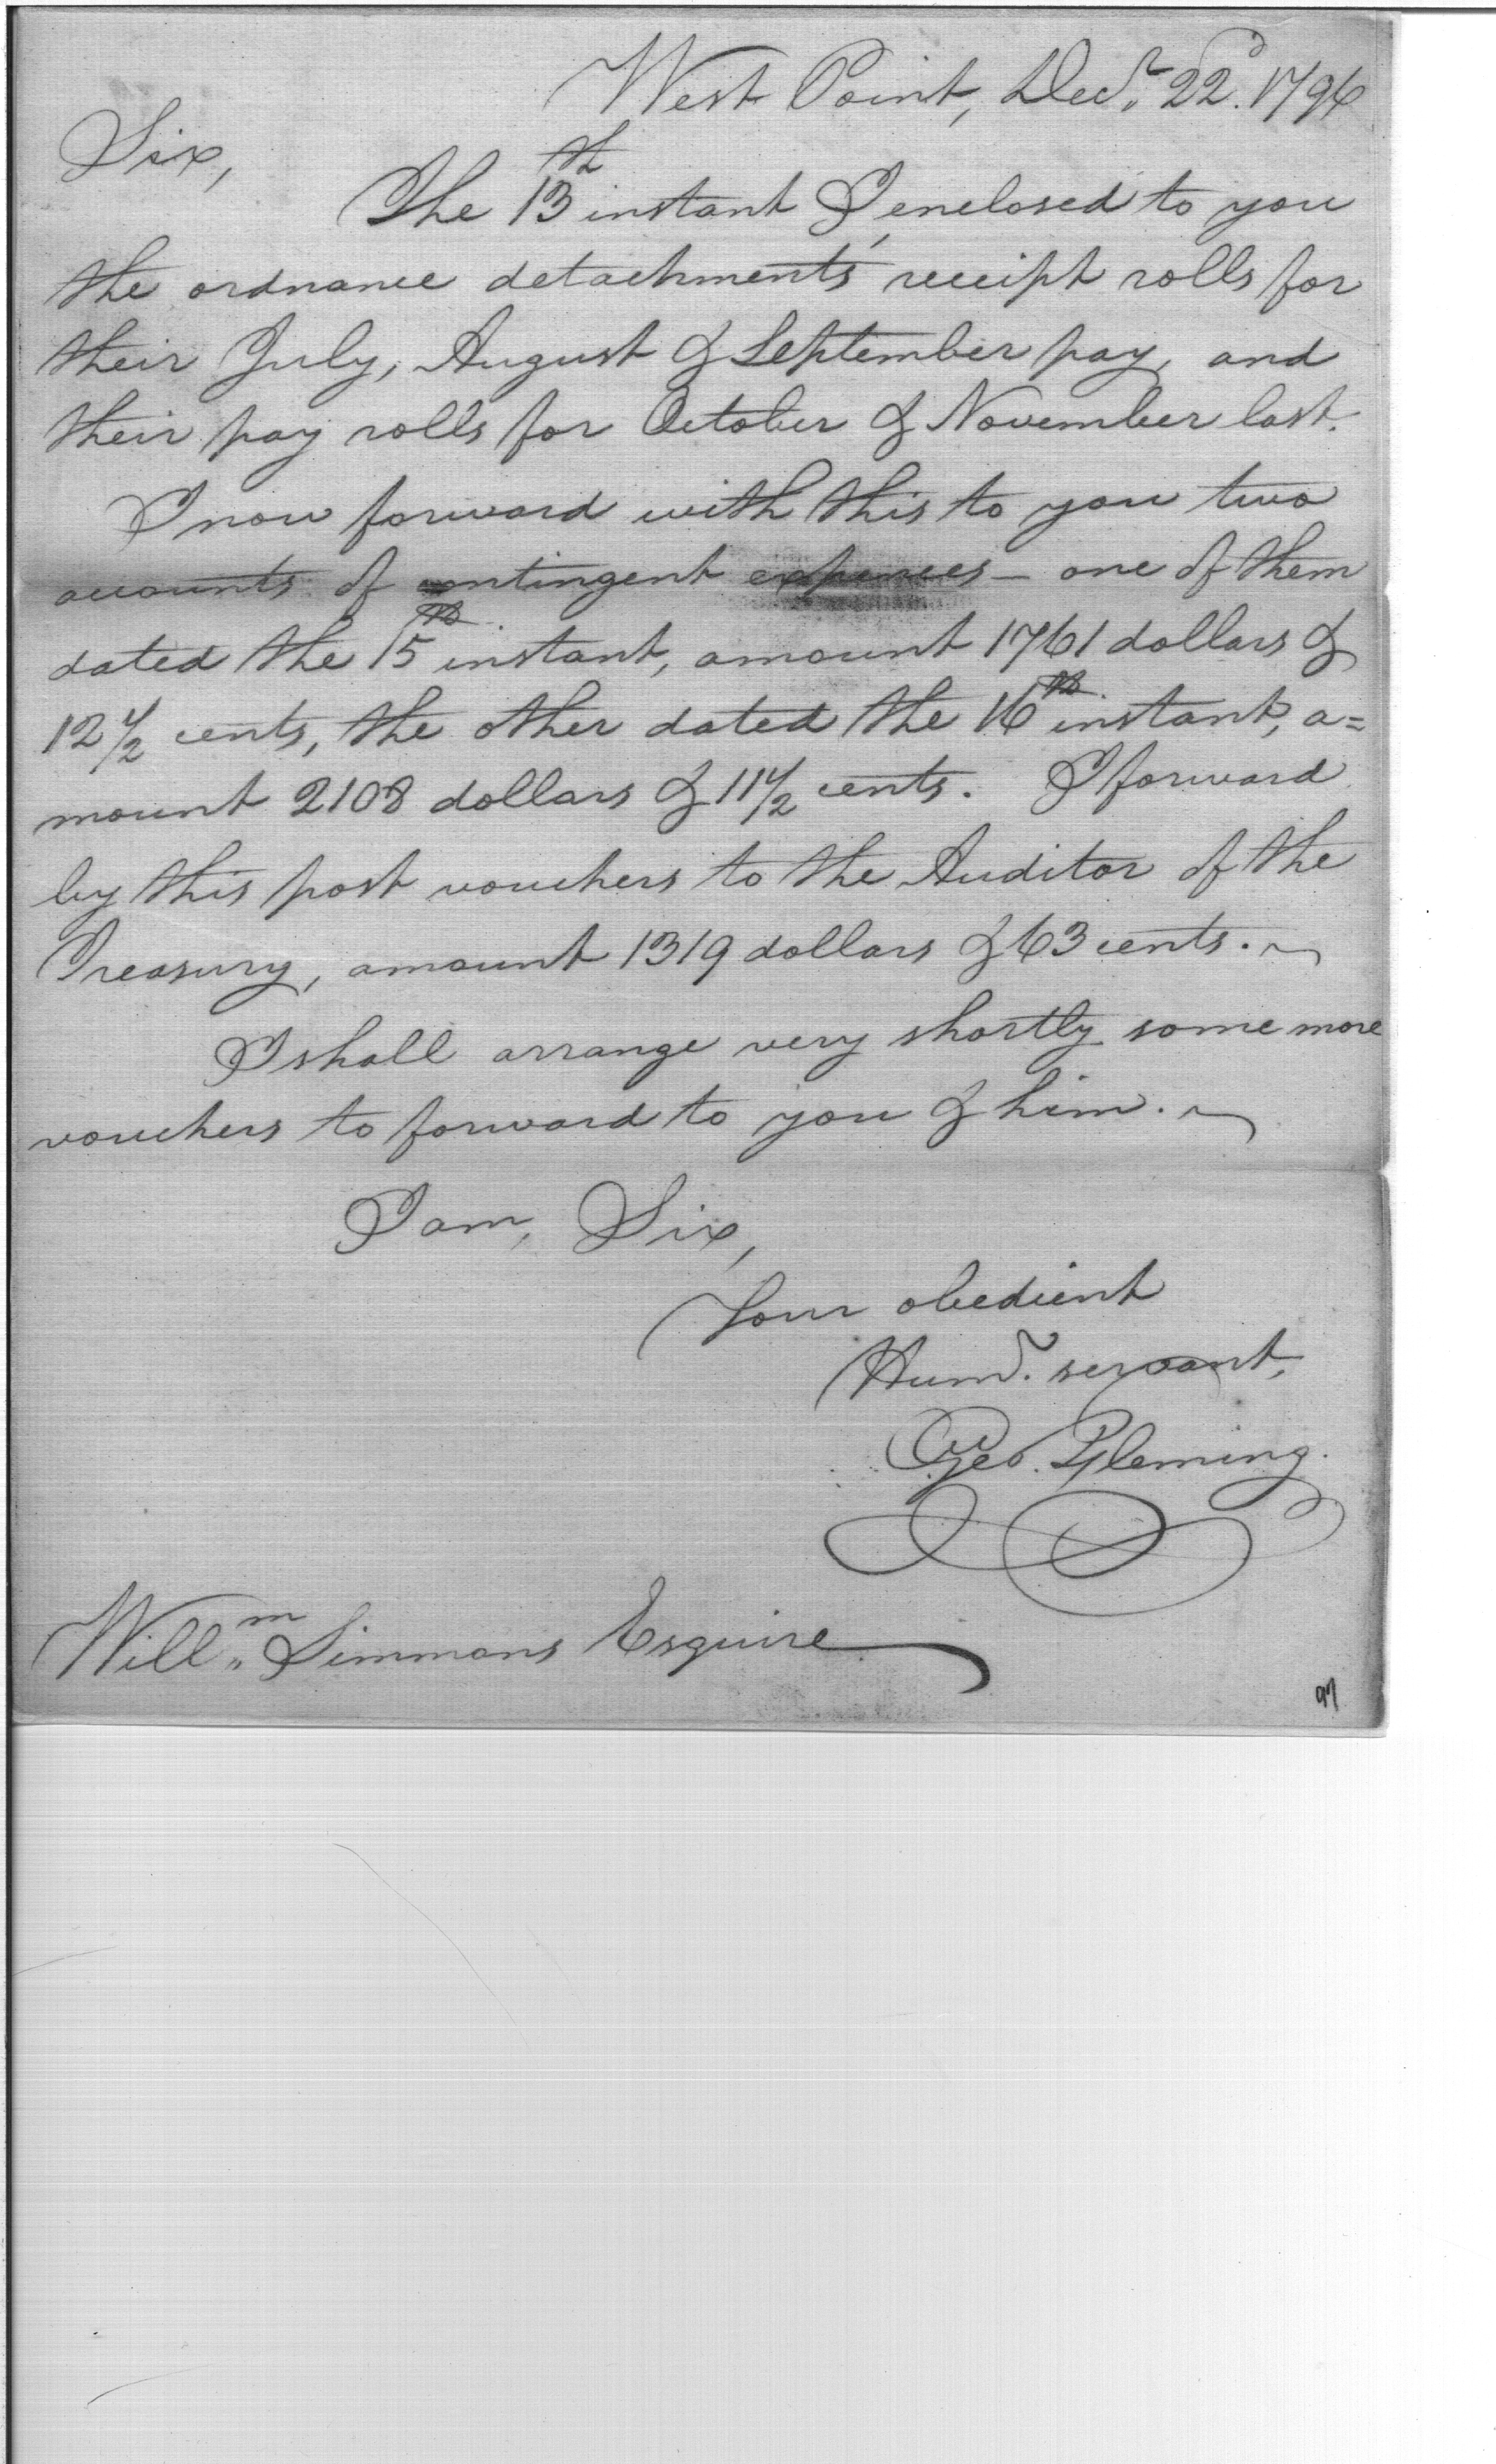 West Point, Decr. 22d. 1796
Sir,
The 13th instant I enclosed to you
the ordnance detachments' receipt rolls for
their July, August & September pay, and
their pay rolls for October & November last.
I now forward with this to you two
accounts of contingent expences — one of them
dated the 15th instant, amount 1761 dollars &
12 1/2 cents, the other dated the 16th instant, a=
mount 2108 dollars & 11 1/2 cents. I forward
by this post vouchers to the Auditor of the
Treasury, amount 1319 dollars & 63 cents. ~
I shall arrange very shortly some more
vouchers to forward to you & him. ~
I am, Sir,
Your obedient
Hume. servant,
Geo. Fleming.
Willm Simmons Esquire
97